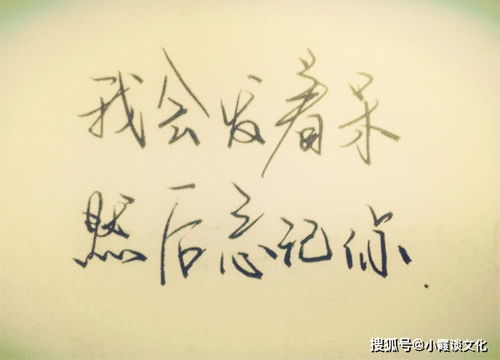 我会发着呆
然后忘记你.
搜狐号@小霞谈文化